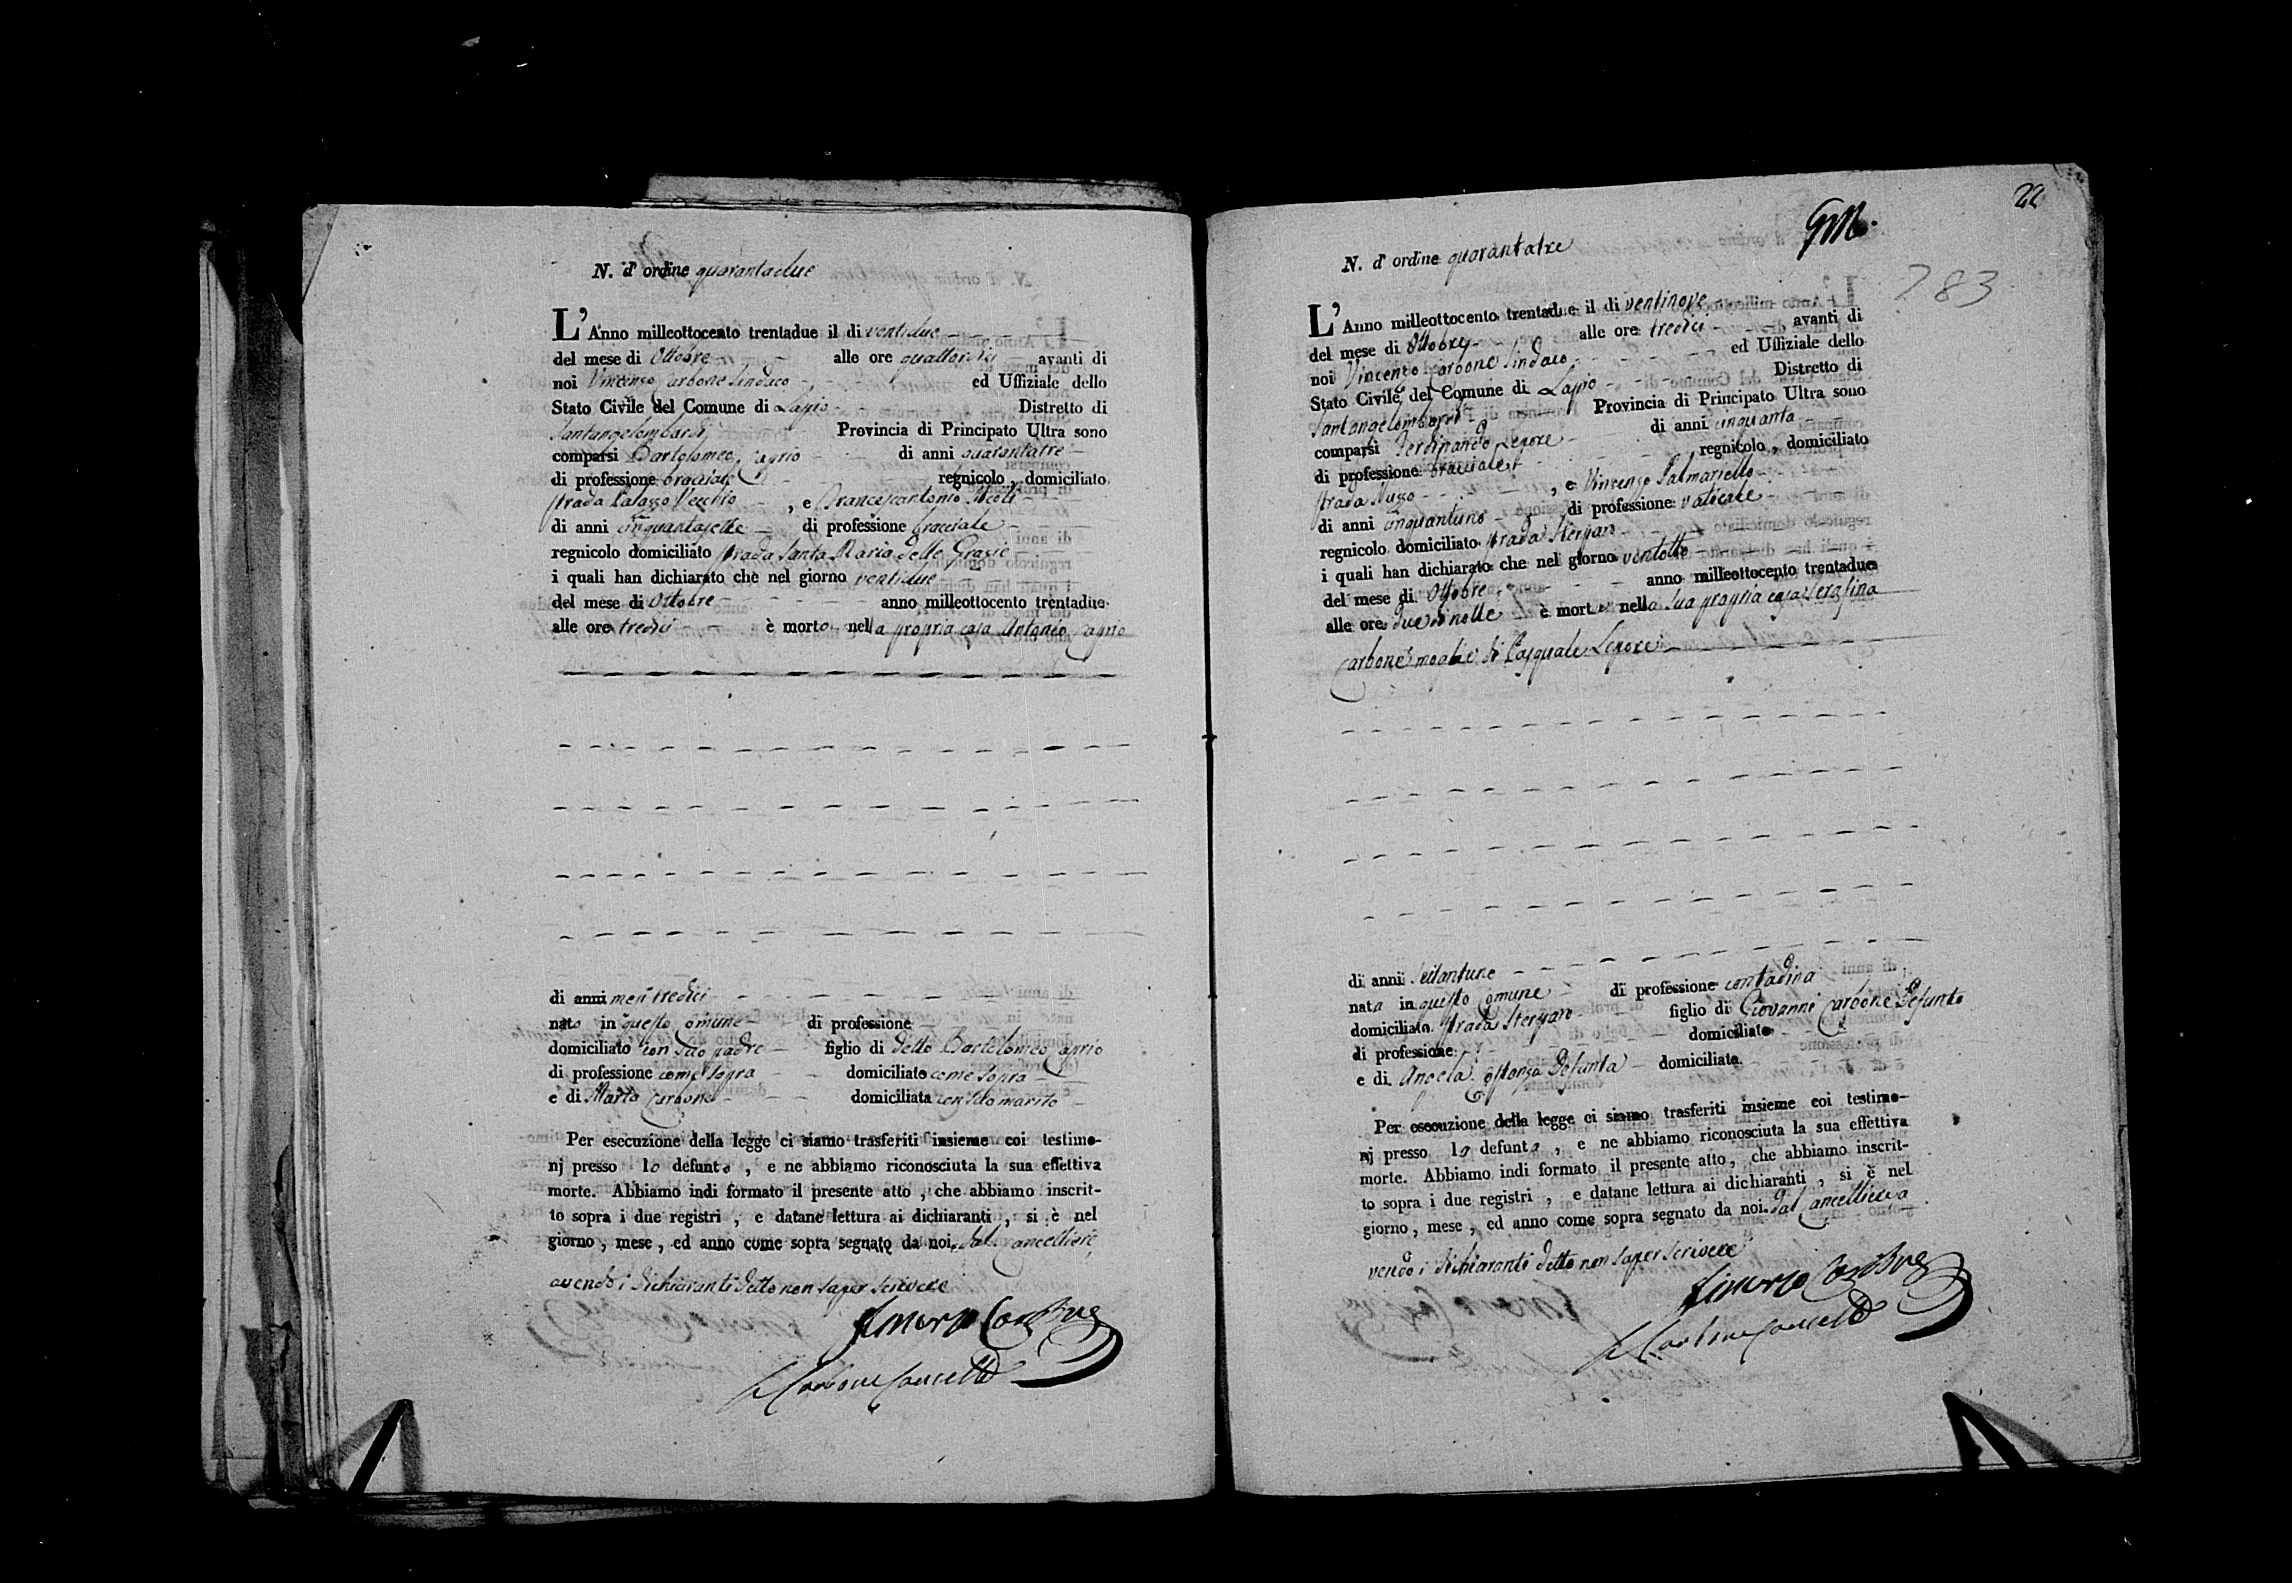 N. d' ordine quarantadue
L' Anno milleottocento trentadue il di ventidue
del mese di Ottobre alle ore quattordici avanti di
noi Vincenzo Carbone Sindaco ed Uffiziale dello
Stato Civile del Comune di Lapio Distretto di
Santangelombardi Provincia di Principato Ultra sono
comparsi Bartolomeo Caprio di anni quarantatre
di professione bracciale regnicolo, domiciliato
strada Palazzo Vecchio , e Francescantonio
di anni cinquantasette di professione bracciale
regnicolo domiciliato strada Santa Maria delle Grazie
i quali han dichiarato che nel giorno ventidue
del mese di Ottobre anno milleottocento trentadue
alle ore tredici è morto nella propria casa Antonio Caprio
di anni mesi tredici
nato in questo Comune di professione
domiciliato con suo padre figlio di detto Bartolomeo Caprio
di professione come sopra domiciliato come sopra
e di Maria Carbone domiciliata con suo marito
Per esecuzione della legge ci siamo trasferiti insieme coi testimo-
nj presso lo defunto , e ne abbiamo riconosciuta la sua effettiva
morte. Abbiamo indi formato il presente atto , che abbiamo inscrit-
to sopra i due registri , e datane lettura ai dichiaranti , si è nel
giorno , mese , ed anno come sopra segnato da noi, dal Cancelliere
avendo i dichiaranti detto non saper scrivere
Vincenzo Carbone
Carbone Cancell
22
GM.
783
N. d' ordine quarantatre
L' Anno milleottocento trentadue il di ventinove
del mese di Ottobre alle ore tredici avanti di
noi Vincenzo Carbone Sindaco ed Uffiziale dello
Stato Civile del Comune di Lapio Distretto di
Santangelombardi Provincia di Principato Ultra sono
comparsi Ferdinando Lepore di anni cinquanta
di professione bracciale regnicolo, domiciliato
strada , e Vincenzo Palmariello
di anni cinquantuno di professione vaticale
regnicolo domiciliato strada
i quali han dichiarato che nel giorno ventotto
del mese di Ottobre anno milleottocento trentadue
alle ore due di notte è morta nella sua propria casa Serafina
Carbone moglie di Pasquale Lepore
di anni settantuno
nata in questo Comune di professione contadina
domiciliata strada figlio di Giovanni Carbone Defunto
di professione domiciliato
e di Angela Costanza Defunta domiciliata
Per esecuzione della legge ci siamo trasferiti insieme coi testimo-
nj presso la defunta , e ne abbiamo riconosciuta la sua effettiva
morte. Abbiamo indi formato il presente atto, che abbiamo inscrit-
to sopra i due registri , e datane lettura ai dichiaranti , si è nel
giorno, mese, ed anno come sopra segnato da noi, dal Cancelliere a
vendo i dichiaranti detto non saper scrivere
Vincenzo Carbone
Carbone Cancell